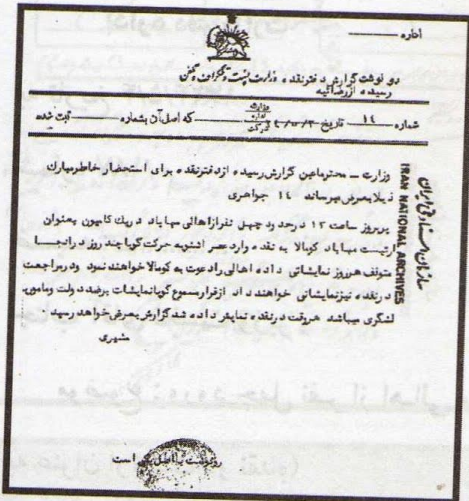 اداره
وزارت پست و تلگراف و تلفن
رونوشت گزارش دفتر نقده
رسیده از رضائیه
شماره ۱۴ تاریخ که اصل آن بشماره ثبت شده
وزارت اداره شرکت
وزارت – محترما عین گزارش رسیده از دفتر نقده برای استحضار خاطر مبارک
ذیلا بعرض میرساند ۱۴ جواهری
پریروز ساعت ۱۳ در حدود چهل نفر از اهالی مهاباد در یک کامیون بعنوان
آرتیست مهاباد کومالا به نقده وارد عصر اشنویه حرکت گویا چند روز در آنجا
متوقف هر روز نمایشاتی داده اهالی را دعوت به کومالا خواهند نمود و در مراجعت
در نقده نیز نمایشاتی خواهند داد از قرار مسموع گویا نمایشات بر ضد دولت و مامورین
لشگری میباشد هر وقت در نقده نمایش داده شد گزارش بعرض خواهد رسید
مشیری
رونوشت با اصل است
سازمان اسناد ملی ایران
IRAN NATIONAL ARCHIVES